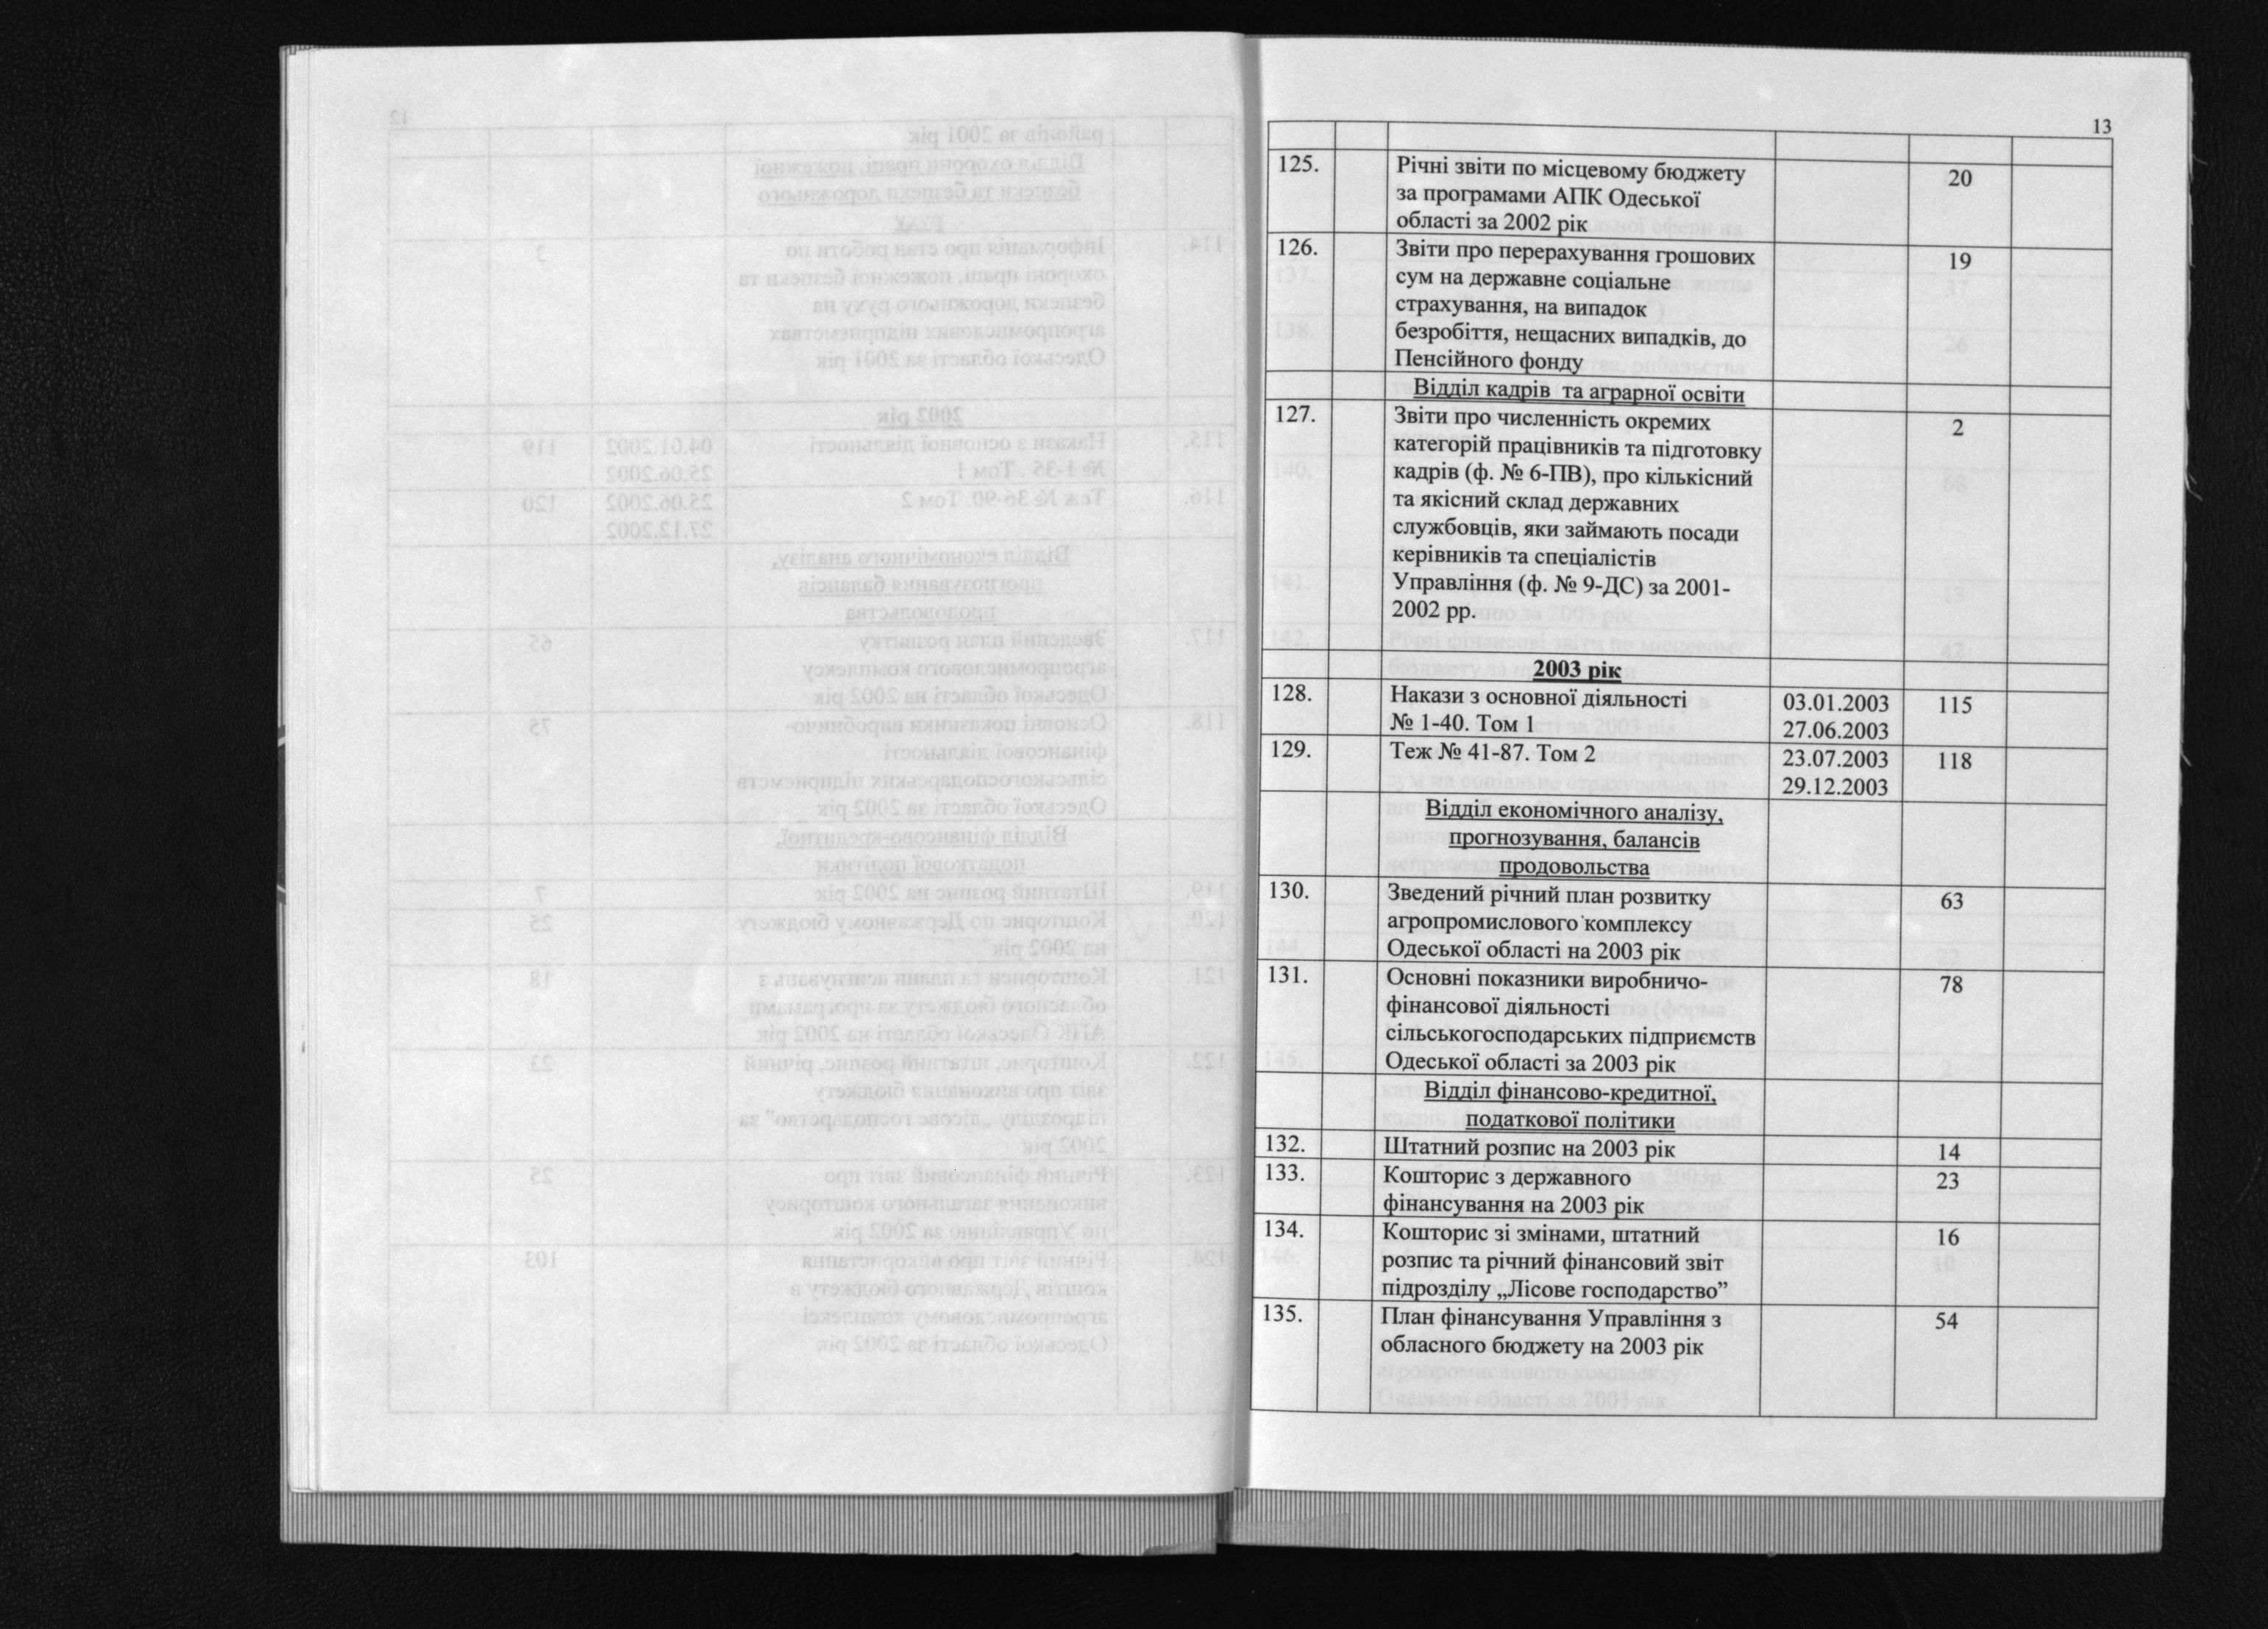 13
125. Річні звіти по місцевому бюджету 20
за програмами АПК Одеської
області за 2002 рік
126. Звіти про перерахування грошових 19
сум на державне соціальне
страхування, на випадок
безробіття, нещасних випадків, до
Пенсійного фонду
Відділ кадрів та аграрної освіти
127. Звіти про численність окремих 2
категорій працівників та підготовку
кадрів (ф. № 6-ПВ), про кількісний
та якісний склад державних
службовців, яки займають посади
керівників та спеціалістів
Управління (ф. № 9-ДС) за 2001-
2002 рр.
2003 рік
128. Накази з основної діяльності 03.01.2003 115
№ 1-40. Том 1 27.06.2003
129. Теж № 41-87. Том 2 23.07.2003 118
29.12.2003
Відділ економічного аналізу,
прогнозування, балансів
продовольства
130. Зведений річний план розвитку 63
агропромислового комплексу
Одеської області на 2003 рік
131. Основні показники виробничо- 78
фінансової діяльності
сільськогосподарських підприємств
Одеської області за 2003 рік
Відділ фінансово-кредитної,
податкової політики
132. Штатний розпис на 2003 рік 14
133. Кошторис з державного 23
фінансування на 2003 рік
134. Кошторис зі змінами, штатний 16
розпис та річний фінансовий звіт
підрозділу „Лісове господарство”
135. План фінансування Управління з 54
обласного бюджету на 2003 рік